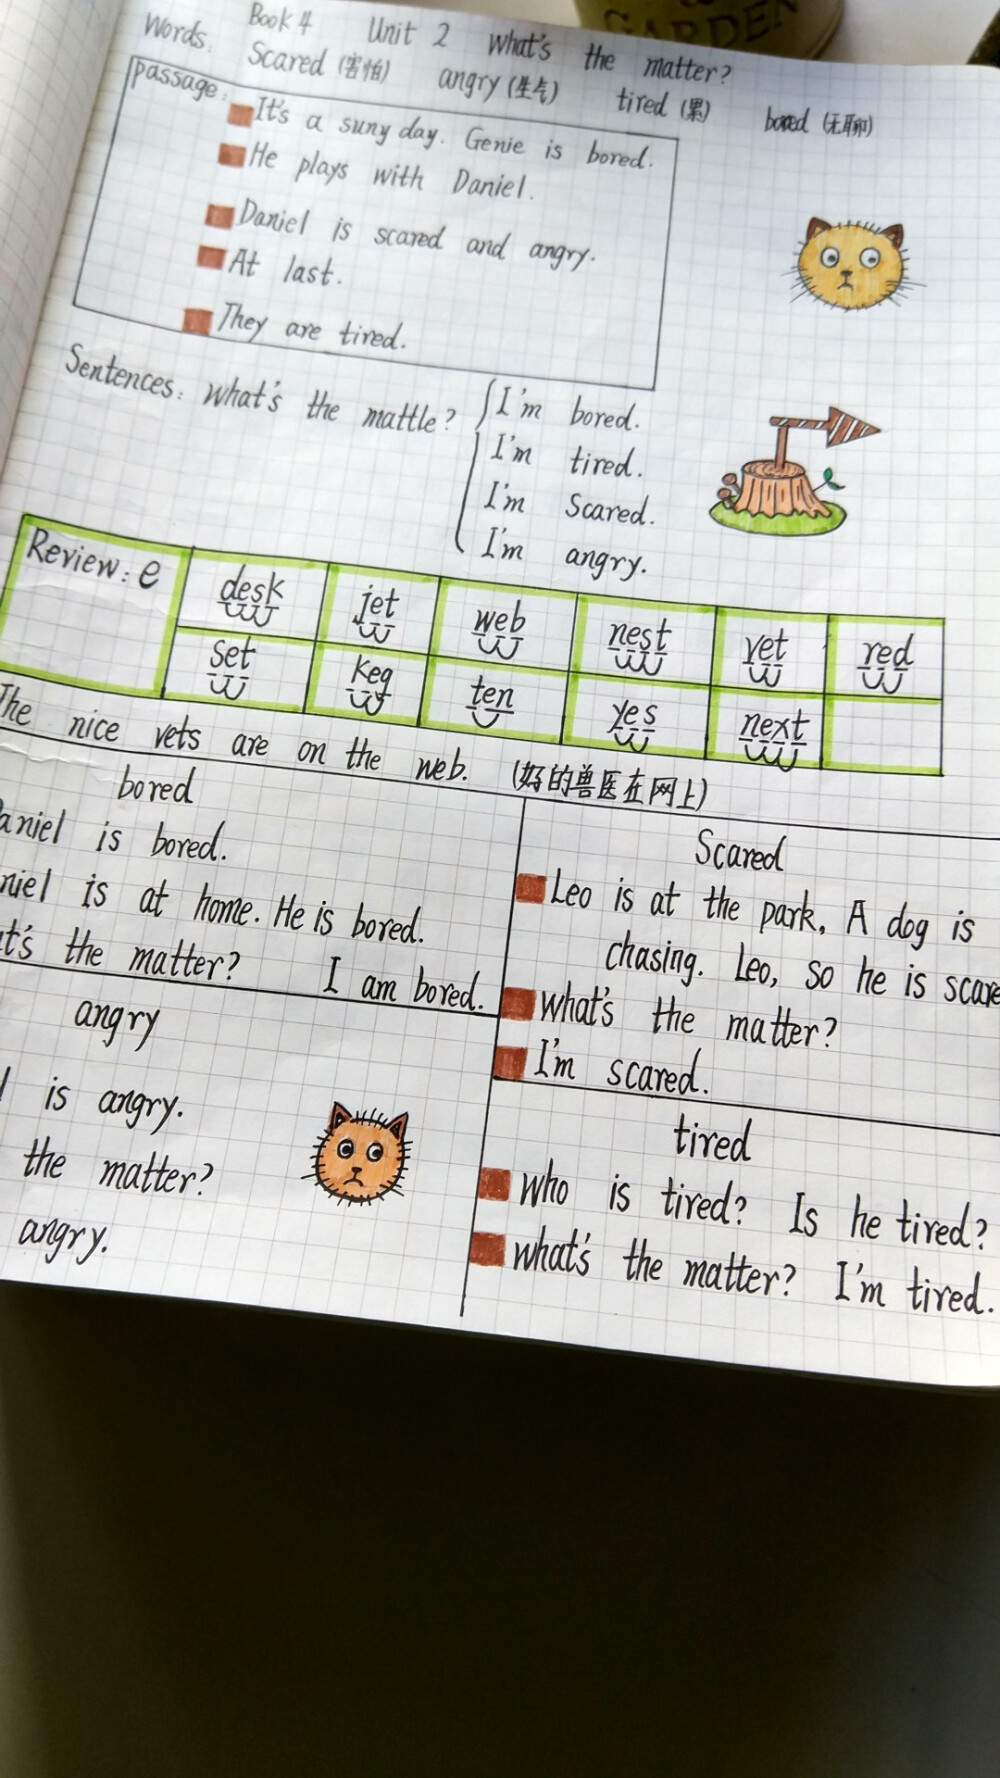 GARDEN
Book 4 Unit 2 What's the matter?
Words: Scared (害怕) angry (生气) tired (累) bored (无聊)
passage:
It's a suny day. Genie is bored.
He plays with Daniel.
Daniel is scared and angry.
At last.
They are tired.
Sentences: What's the mattle? I'm bored.
I'm tired.
I'm Scared.
I'm angry.
Review: e desk jet web nest vet red
set keg ten yes next
The nice vets are on the web. (好的兽医在网上)
bored
aniel is bored.
niel is at home. He is bored.
t's the matter? I am bored.
angry
is angry.
the matter?
angry.
Scared
Leo is at the park, A dog is
chasing. Leo, so he is scare
what's the matter?
I'm scared.
tired
who is tired? Is he tired?
what's the matter? I'm tired.